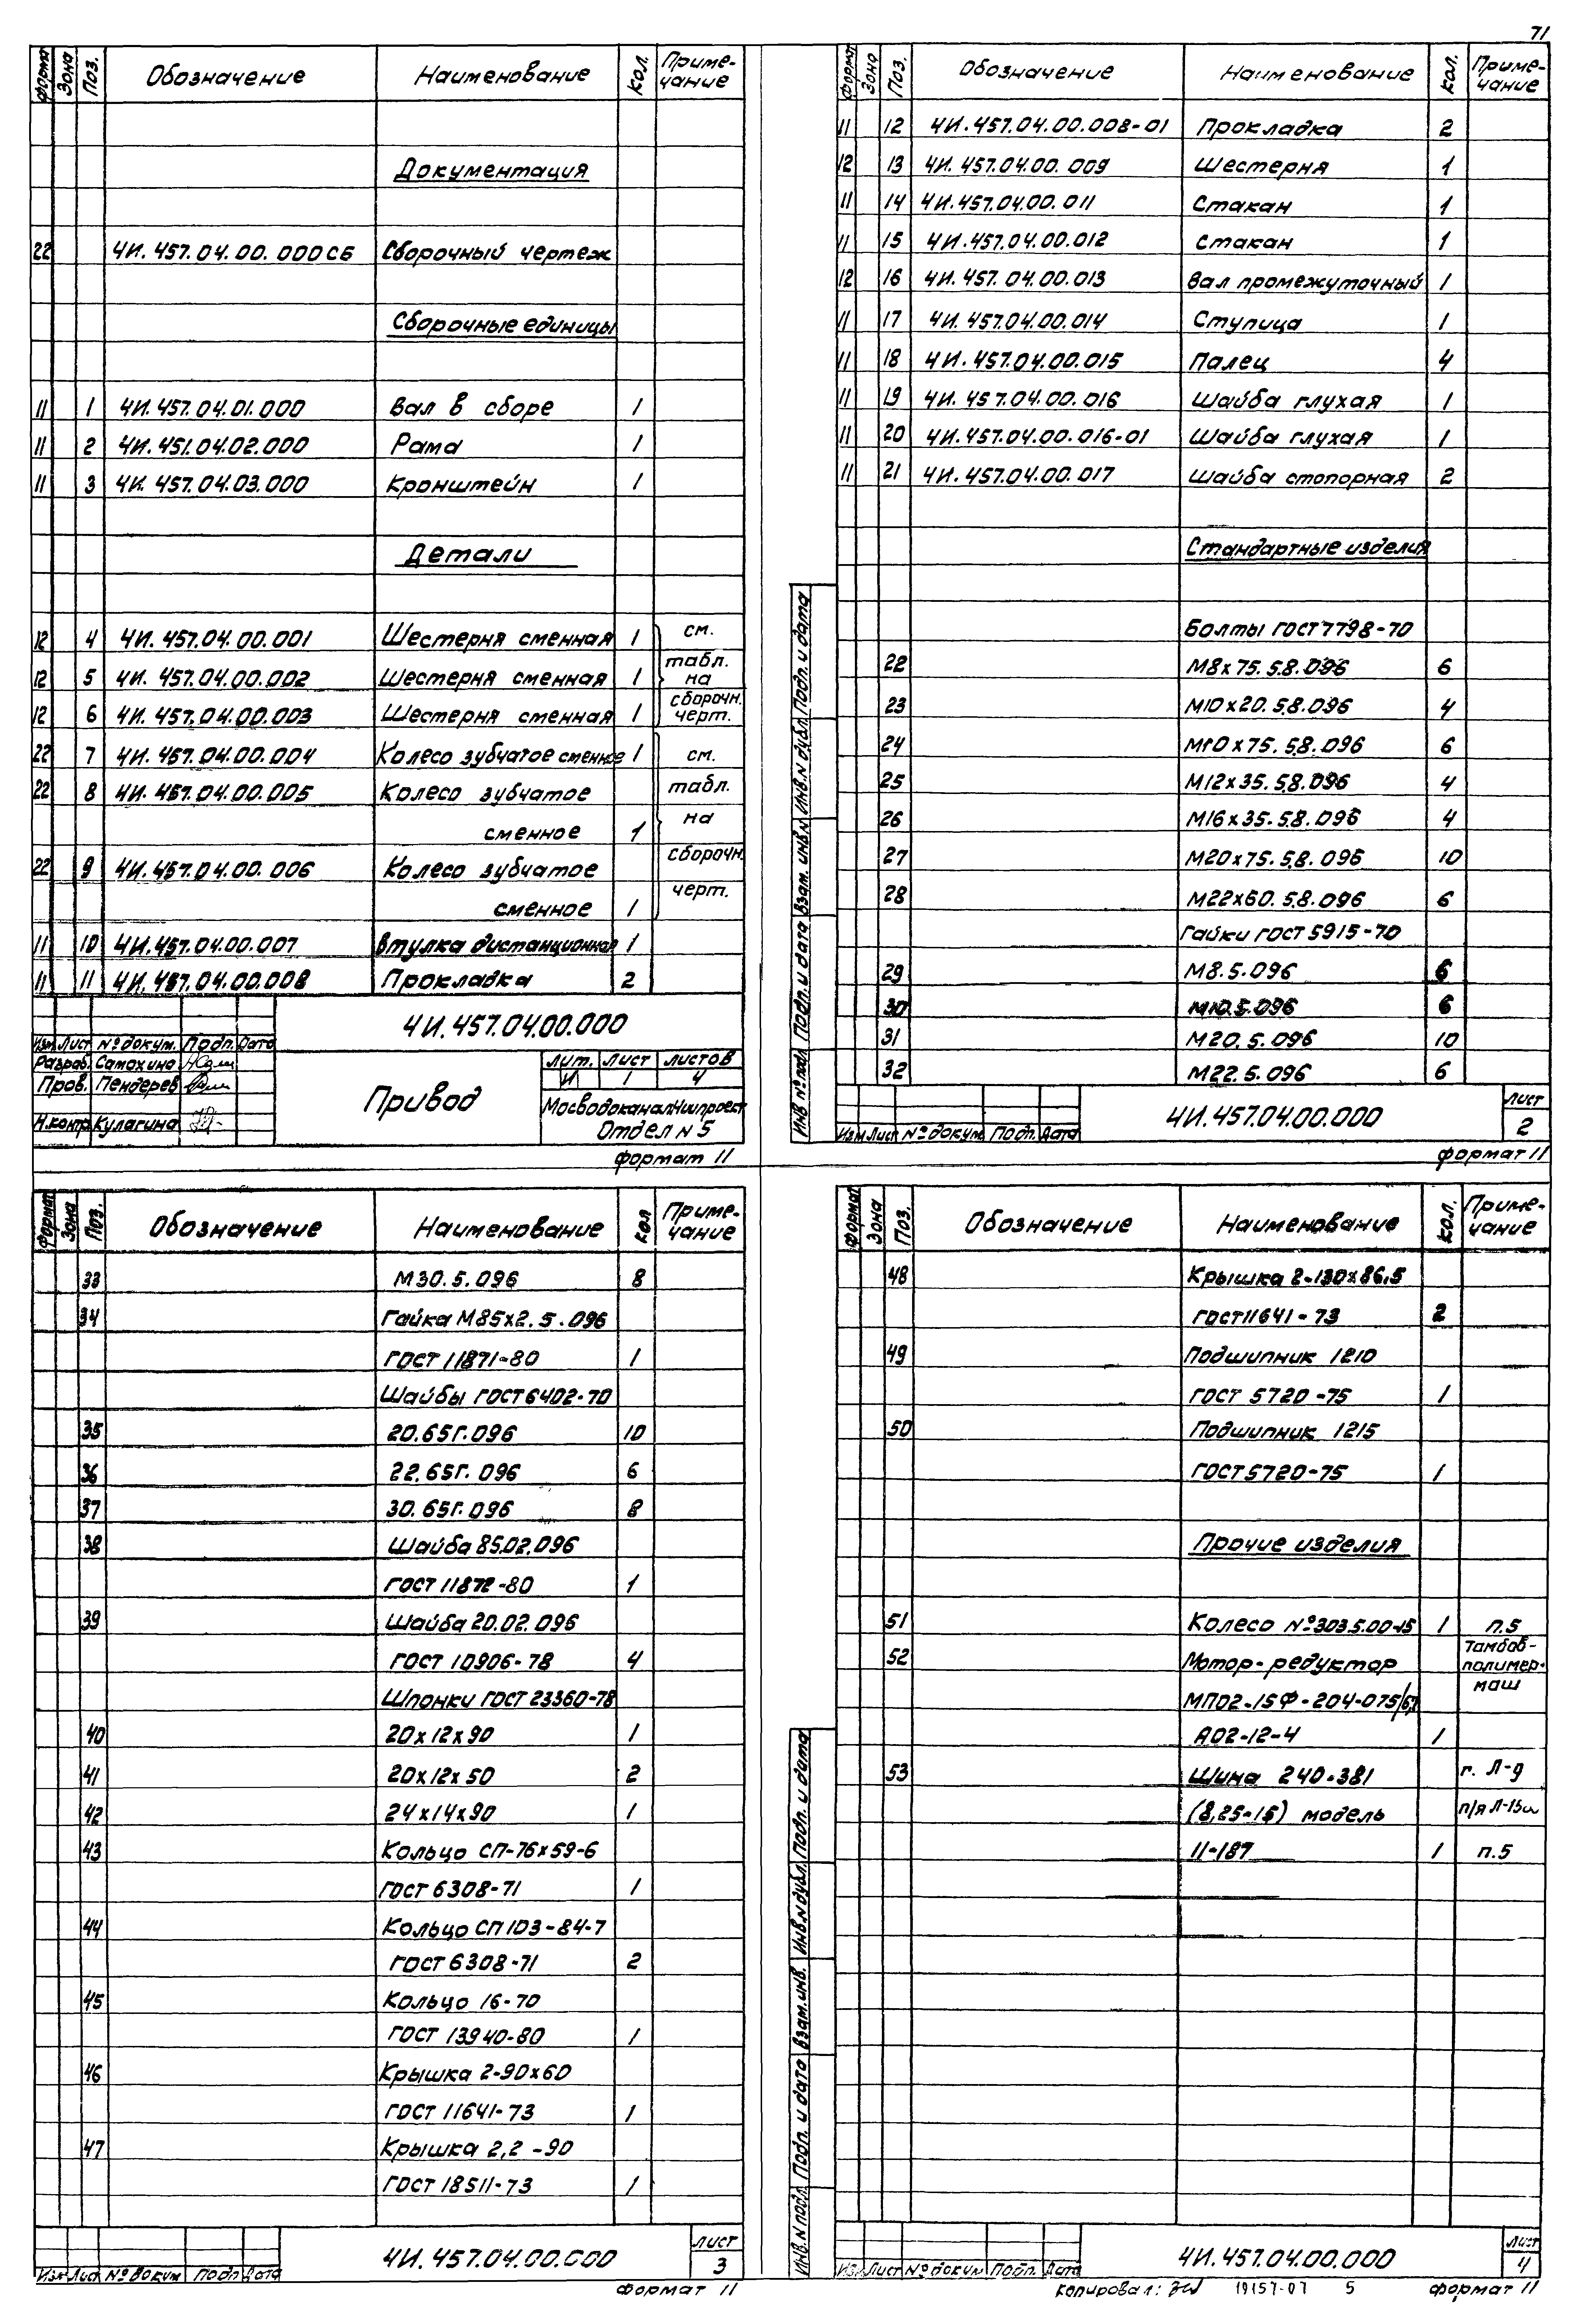 71
Форма Зона Поз. Обозначение Наименование Кол. Приме-
чание
Документация
22 4И.457.04.00.000СБ Сборочный чертеж
Сборочные единицы
11 1 4И.457.04.01.000 Вал в сборе 1
11 2 4И.451.04.02.000 Рама 1
11 3 4И.457.04.03.000 Кронштейн 1
Детали
12 4 4И.457.04.00.001 Шестерня сменная 1 см.
табл.
12 5 4И.457.04.00.002 Шестерня сменная 1 на
сборочн.
12 6 4И.457.04.00.003 Шестерня сменная 1 черт.
22 7 4И.457.04.00.004 Колесо зубчатое сменное 1 см.
22 8 4И.457.04.00.005 Колесо зубчатое табл.
сменное 1 на
22 9 4И.457.04.00.006 Колесо зубчатое сборочн.
сменное 1 черт.
11 10 4И.457.04.00.007 Втулка дистанционная 1
11 11 4И.457.04.00.008 Прокладка 2
4И.457.04.00.000
Изм Лист № докум. Подп. Дата
Разраб. Самохина
Пров. Пендерев
Н.контр. Кулагина
Привод
Лит. Лист Листов
И 1 4
МосводоканалНИИпроект
Отдел N 5
формат 11
Форма Зона Поз. Обозначение Наименование Кол. Приме-
чание
11 12 4И.457.04.00.008-01 Прокладка 2
12 13 4И.457.04.00.009 Шестерня 1
11 14 4И.457.04.00.011 Стакан 1
11 15 4И.457.04.00.012 Стакан 1
12 16 4И.457.04.00.013 Вал промежуточный 1
11 17 4И.457.04.00.014 Ступица 1
11 18 4И.457.04.00.015 Палец 4
11 19 4И.457.04.00.016 Шайба глухая 1
11 20 4И.457.04.00.016-01 Шайба глухая 1
11 21 4И.457.04.00.017 Шайба стопорная 2
Стандартные изделия
Болты ГОСТ 7798-70
22 М8х75.58.096 6
23 М10х20.58.096 4
24 М10х75.58.096 6
25 М12х35.58.096 4
26 М16х35.58.096 4
27 М20х75.58.096 10
28 М22х60.58.096 6
Гайки ГОСТ 5915-70
29 М8.5.096 6
30 М10.5.096 6
31 М20.5.096 10
32 М22.5.096 6
Инв. № подл. Подп. и дата Взам. инв. N Инв. N дубл. Подп. и дата
Изм Лист № докум Подп. Дата
4И.457.04.00.000
Лист
2
формат 11
Формат Зона Поз. Обозначение Наименование Кол Приме-
чание
33 М30.5.096 8
34 Гайка М85х2.5.096
ГОСТ 11871-80 1
Шайбы ГОСТ 6402-70
35 20.65Г.096 10
36 22.65Г.096 6
37 30.65Г.096 8
38 Шайба 85.02.096
ГОСТ 11872-80 1
39 Шайба 20.02.096
ГОСТ 10906-78 4
Шпонки ГОСТ 23360-78
40 20х12х90 1
41 20х12х50 2
42 24х14х90 1
43 Кольцо СП-76х59-6
ГОСТ 6308-71 1
44 Кольцо СП 103-84-7
ГОСТ 6308-71 2
45 Кольцо 16-70
ГОСТ 13940-80 1
46 Крышка 2-90х60
ГОСТ 11641-73 1
47 Крышка 2,2-90
ГОСТ 18511-73 1
Изм Лист № докум Подп Дата
4И.457.04.00.000
Лист
3
формат 11
Формат Зона Поз. Обозначение Наименование Кол. Приме-
чание
48 Крышка 2-130х86,5
ГОСТ 11641-73 2
49 Подшипник 1210
ГОСТ 5720-75 1
50 Подшипник 1215
ГОСТ 5720-75 1
Прочие изделия
51 Колесо №303.5.00-15 1 п.5
52 Мотор-редуктор Тамбов-
полимер-
маш
МПО2-15Ф-204-075/
АО2-12-4 1
53 Шина 240-381 г. Л-д
(8,25-15) модель п/я
11-187 1 п.5
Инв. N подл. Подп. и дата Взам. инв. Инв. N дубл. Подп. и дата
Изм Лист № докум Подп. Дата
4И.457.04.00.000
Лист
4
Копировал: 19157-07 5 формат 11